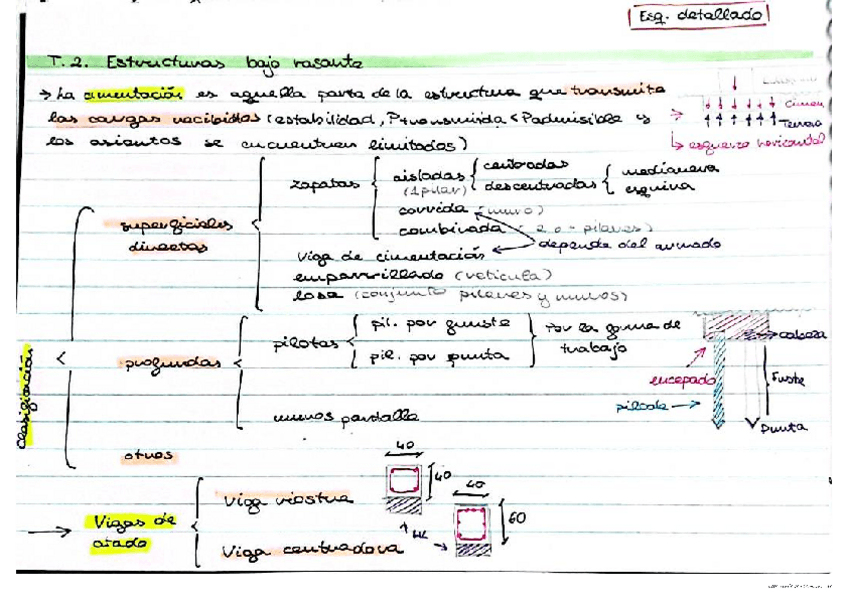 Esq. detallado
T.2. Estructuras bajo rasante
→ La cimentación es aquella parte de la estructura que transmite
las cargas recibidas (estabilidad, Ptransmitida < Padmisible y
los asientos se encuentren limitados)
Cimen.
Terreno
↳ esfuerzo horizontal
Clasificación
superficiales
directas
zapatas
aisladas
(1 pilar)
centradas
descentradas
medianera
esquina
corrida (muro)
combinada (2 o + pilares)
viga de cimentación
depende del armado
emparrillado (retícula)
losa (conjunto pilares y muros)
profundas
pilotes
pil. por fuste
pil. por punta
Por la forma de
trabajo
muros pantalla
otros
cabeza
encepado
pilote →
Fuste
Punta
→ Vigas de
atado
Viga riostra
Viga centradora
40
40
40
60
HL